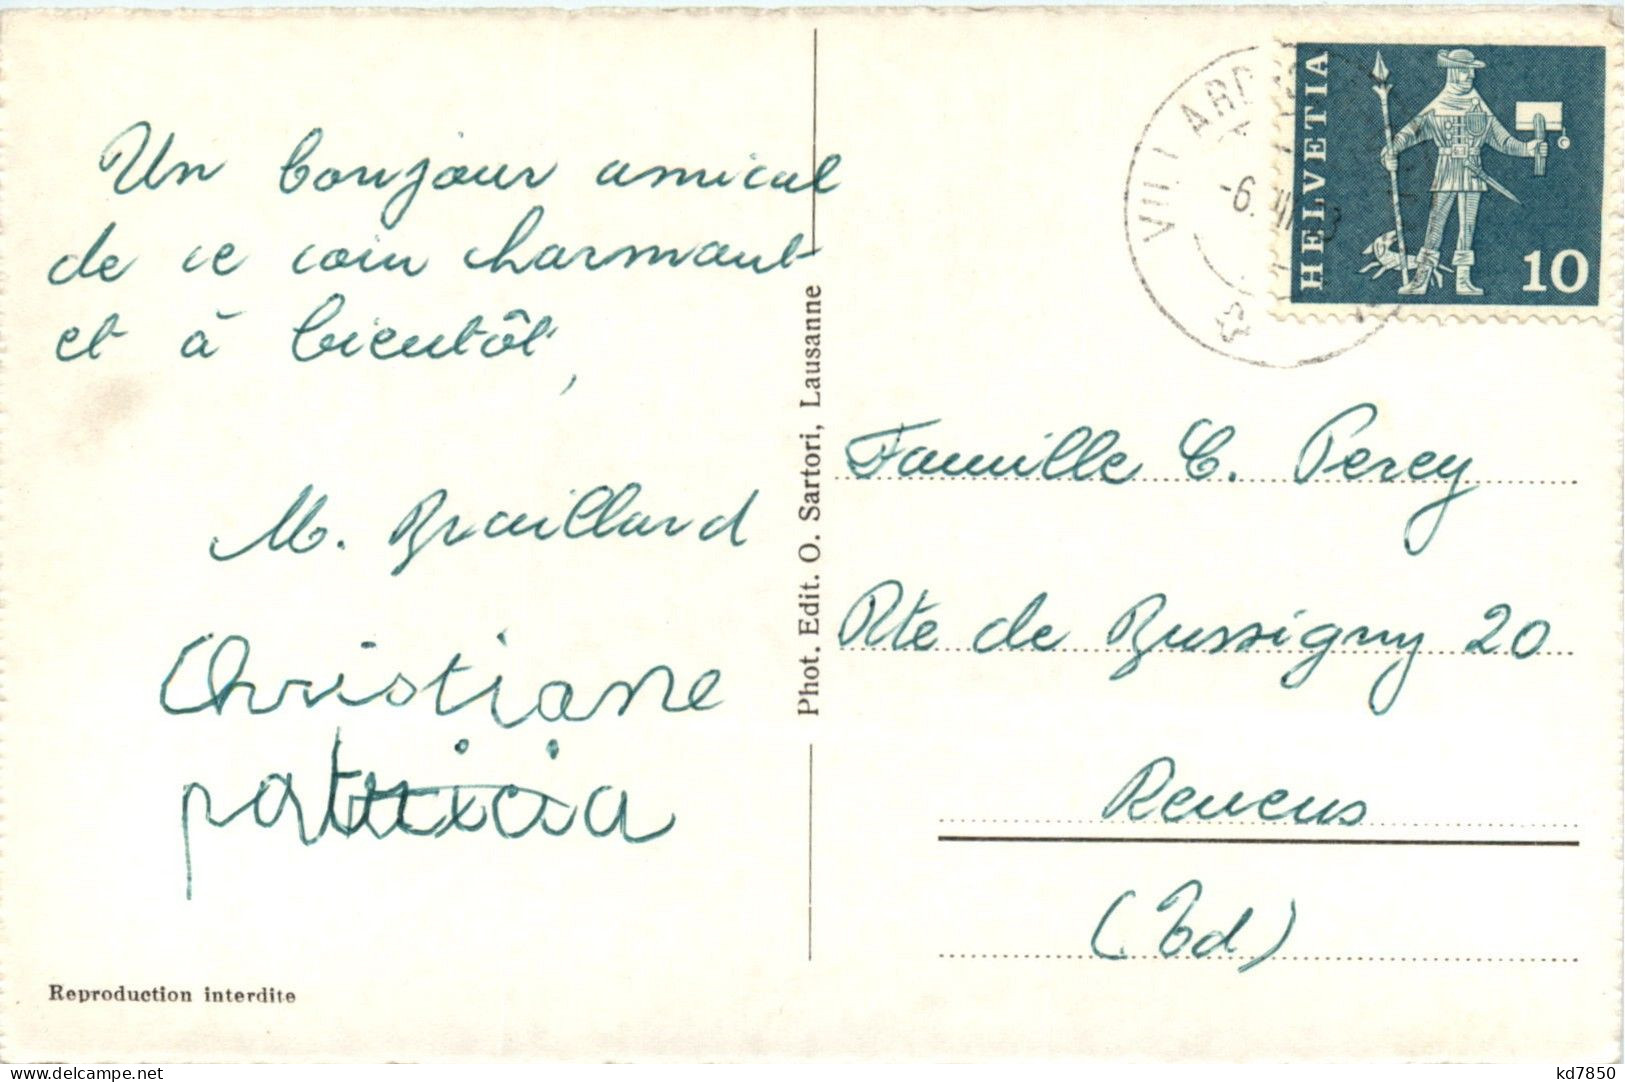 Un bonjour amical
de ce coin charmant
et à bientôt,
M. Braillard
Christiane
patricia
Reproduction interdite
Phot. Edit. O. Sartori, Lausanne
HELVETIA
10
-6.
Famille C. Perey
Rte de Bussigny 20
Renens
(Vd)
delcampe.net
kd7850